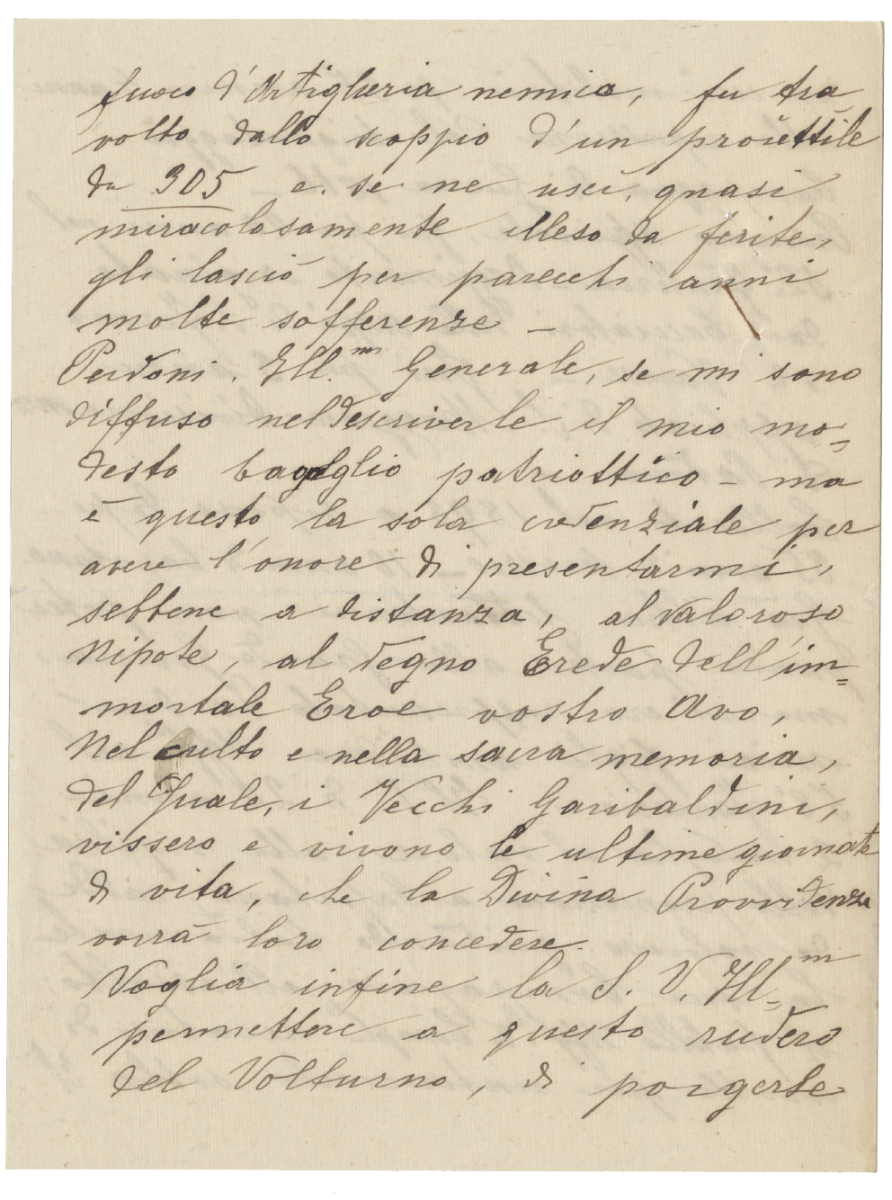 fuoco d'Artiglieria nemica, fu tra
volto dallo scoppio d'un proiettile
da 305 e. se ne uscì, quasi
miracolosamente illeso da ferite,
gli lasciò per parecchi anni
molte sofferenze —
Perdoni. Ill.mo Generale, se mi sono
diffuso nel descriverle il mio mo=
desto bagaglio patriottico — ma
è questo la sola credenziale per
avere l'onore di presentarmi,
sebbene a distanza, al valoroso
Nipote, al degno Erede dell'im=
mortale Eroe vostro Avo,
Nel culto e nella sacra memoria,
del Quale, i Vecchi Garibaldini,
vissero e vivono le ultime giornate
di vita, che la Divina Provvidenza
vorrà loro concedere.
Voglia infine la S. V. Ill=ma
permettere a questo rudero
del Volturno, di porgerle